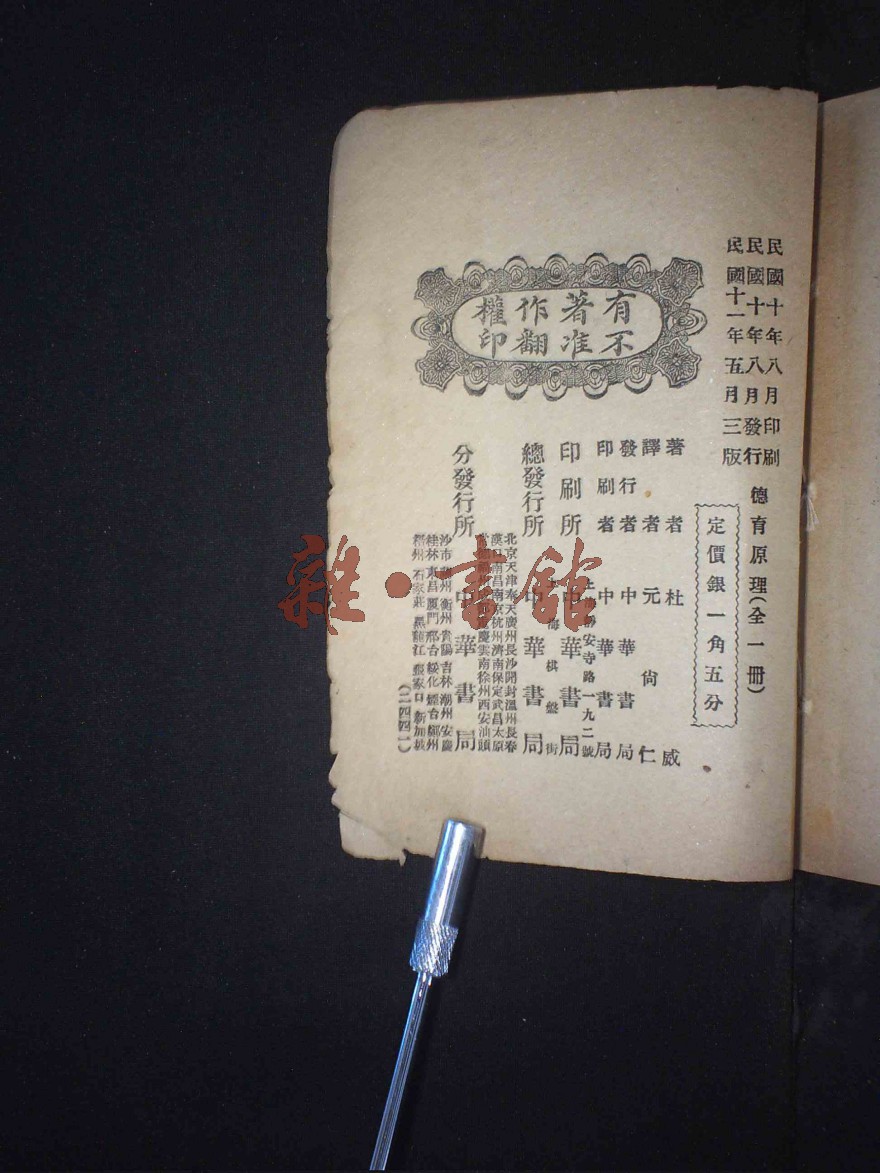 民國十年八月印刷
民國十年八月發行
民國十一年五月三版
德育原理(全一冊)
定價銀一角五分
有著作權
不准翻印
著者 杜威
譯者 元尙仁
發行者 中華書局
印刷者 中華書局
靜安寺路一九二號
印刷所 中華書局
海棋盤街
總發行所 中華書局
北京天津奉天廣州長沙開封溫州長春
漢口南昌南京杭州濟南保定武昌太原
慶雲南徐州西安汕頭
分發行所 中華書局
沙市 州衡州貴陽吉林潮州安慶
桂林東昌廈門邢台綏化煙台 州
州石家莊黑龍江張家口新加坡
(二四四一)
雜·書館